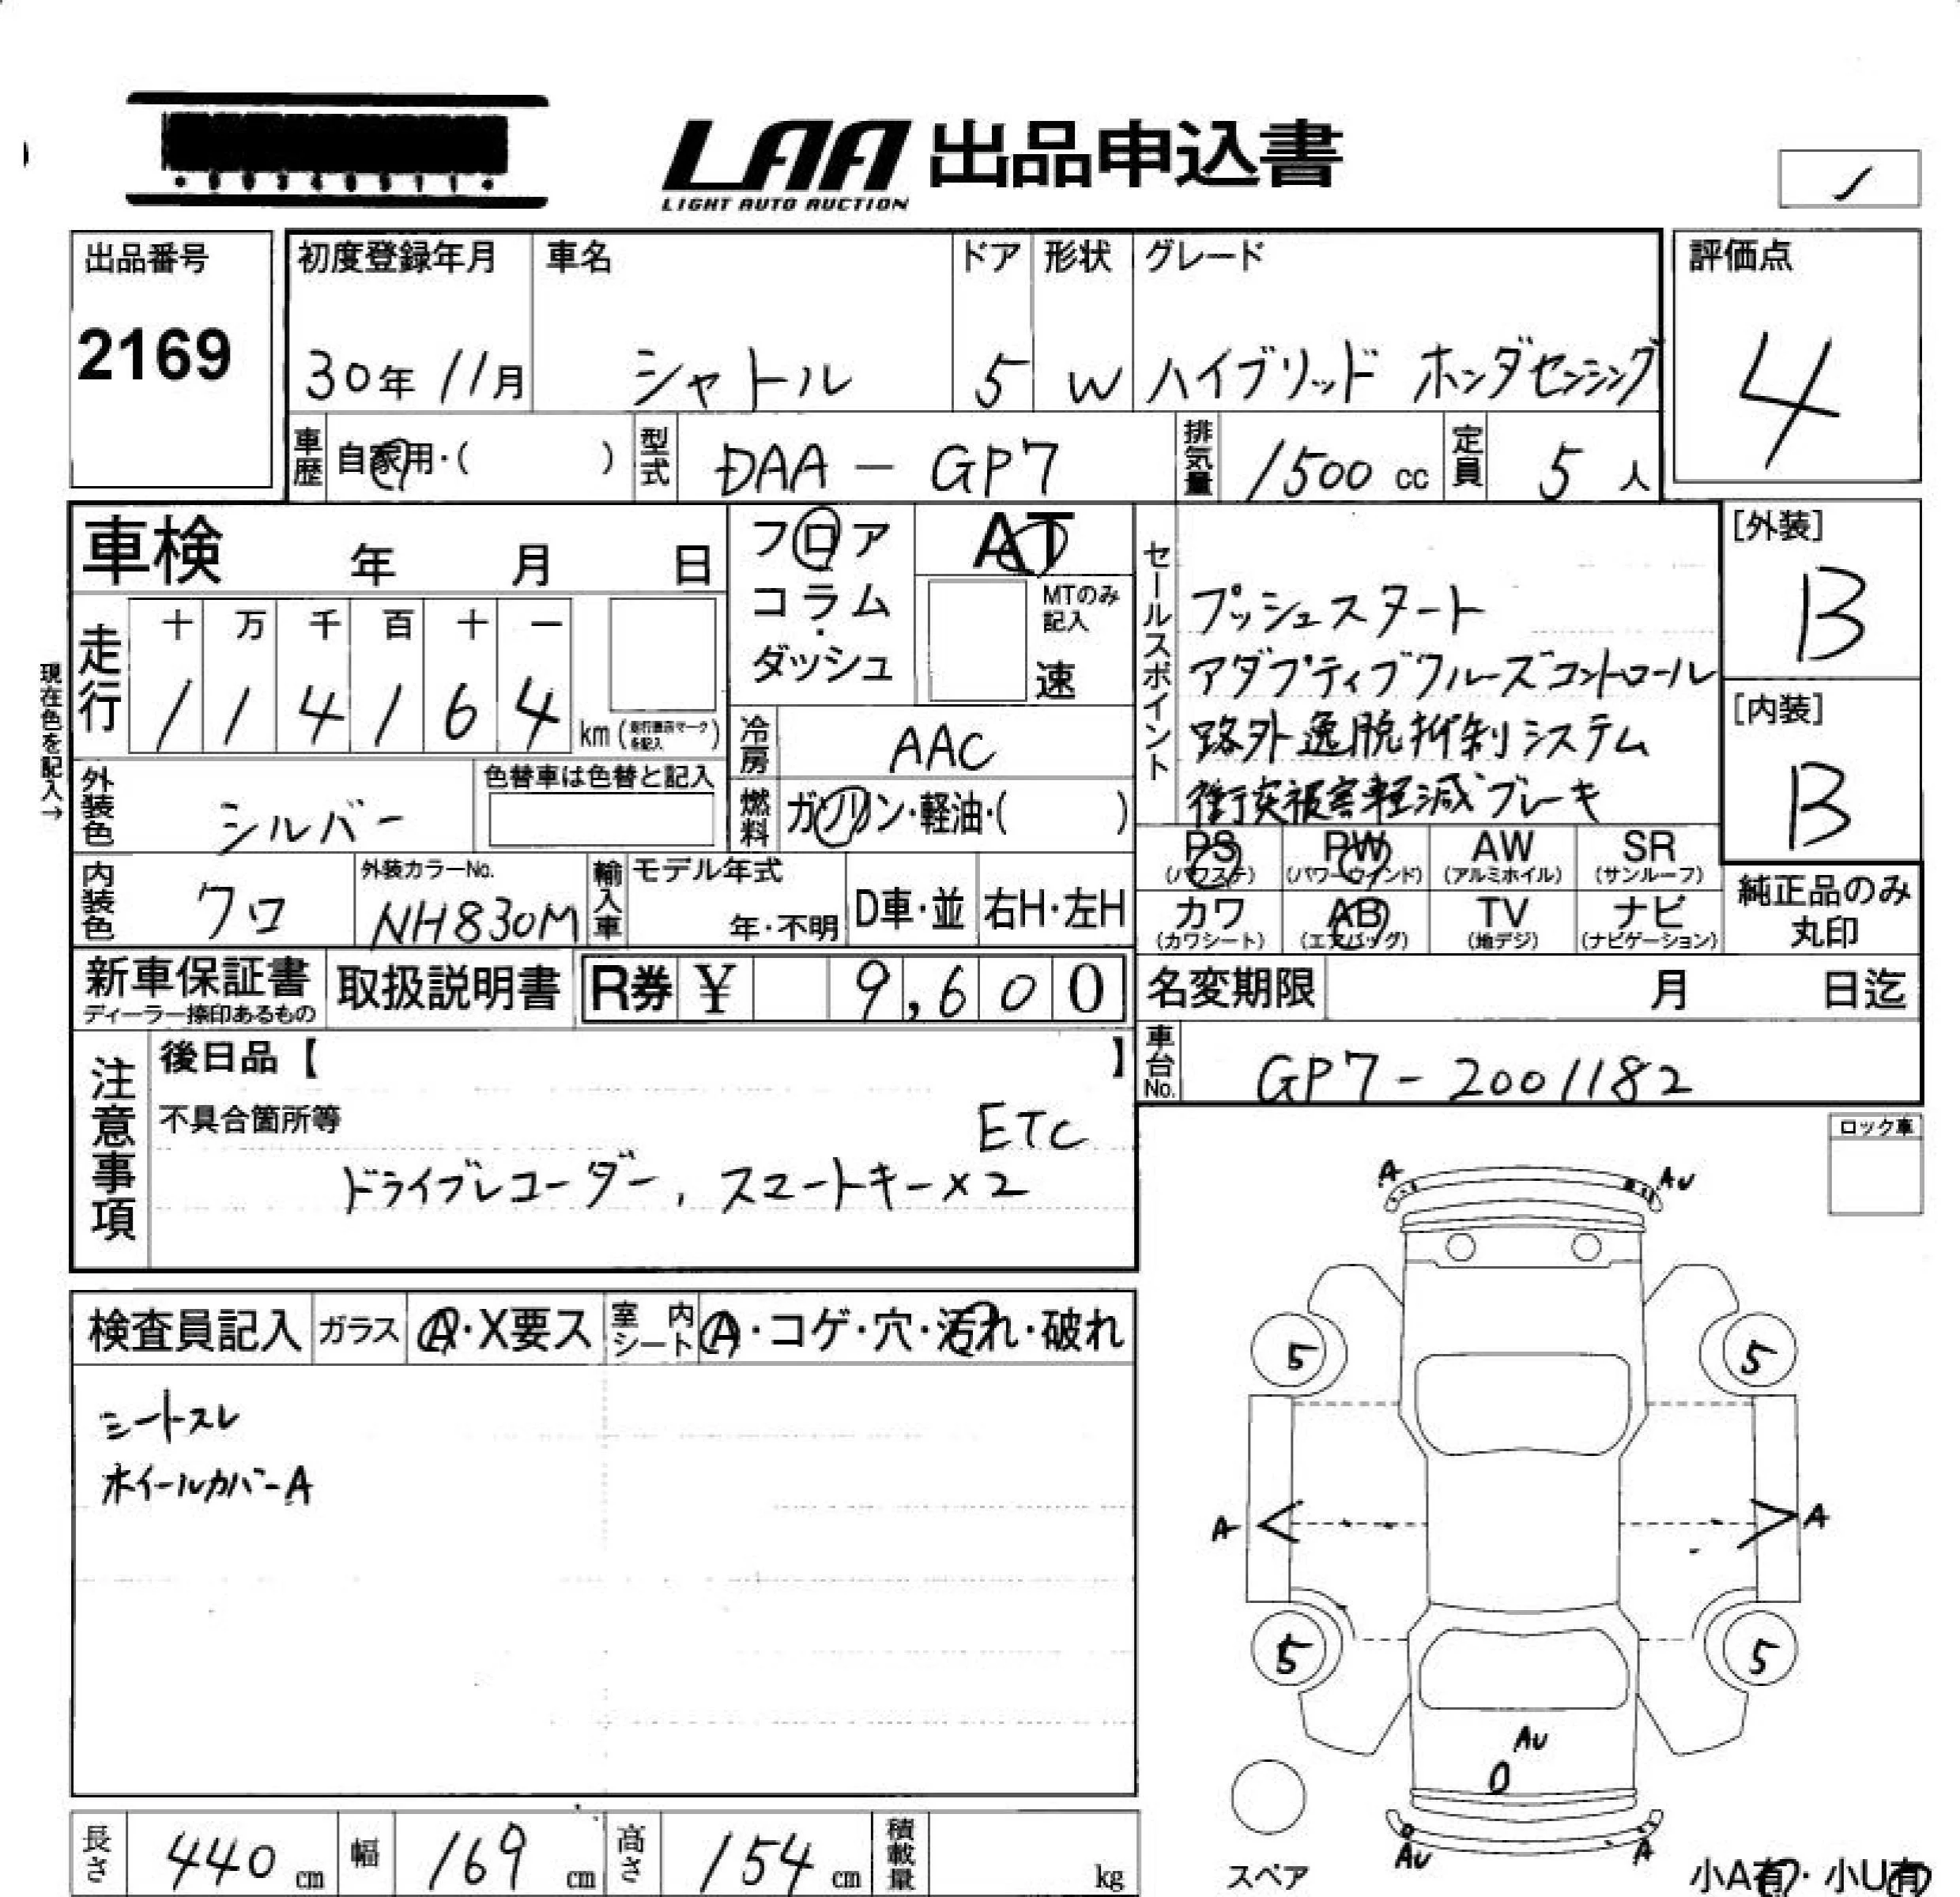 LAA 出品申込書
LIGHT AUTO AUCTION
出品番号
2169
初度登録年月
30年 11月
車名
シャトル
ドア
5
形状
W
グレード
ハイブリッド ホンダセンシング
評価点
4
車歴
自家用・( )
型式
DAA - GP7
排気量
1500 cc
定員
5 人
車検 年 月 日
フロア
コラム
・
ダッシュ
AT
MTのみ
記入
速
走行
十 万 千 百 十 一
1 1 4 1 6 4 km
現在色を記入→
外装色
シルバー
色替車は色替と記入
冷房
AAC
燃料
ガソリン・軽油・( )
セールスポイント
プッシュスタート
アダプティブクルーズコントロール
路外逸脱抑制システム
衝突被害軽減ブレーキ
[外装]
B
[内装]
B
内装色
クロ
外装カラーNo.
NH830M
輸入車
モデル年式
年・不明
D車・並
右H・左H
PS
(パワステ)
PW
(パワーウインド)
AW
(アルミホイル)
SR
(サンルーフ)
カワ
(カワシート)
AB
(エアバッグ)
TV
(地デジ)
ナビ
(ナビゲーション)
純正品のみ
丸印
新車保証書
ディーラー捺印あるもの
取扱説明書
R券 ¥ 9,600
名変期限 月 日迄
車台No.
GP7-2001182
注意事項
後日品【 】
不具合箇所等
ETC
ドライブレコーダー, スマートキー×2
ロック車
検査員記入
ガラス
A・X要ス
室内
シート
A・コゲ・穴・汚れ・破れ
シートスレ
ホイールカバーA
A
AU
5
5
A
A
5
5
AU
AU
A
スペア
小A有・小U有
長さ
440 cm
幅
169 cm
高さ
154 cm
積載量
kg